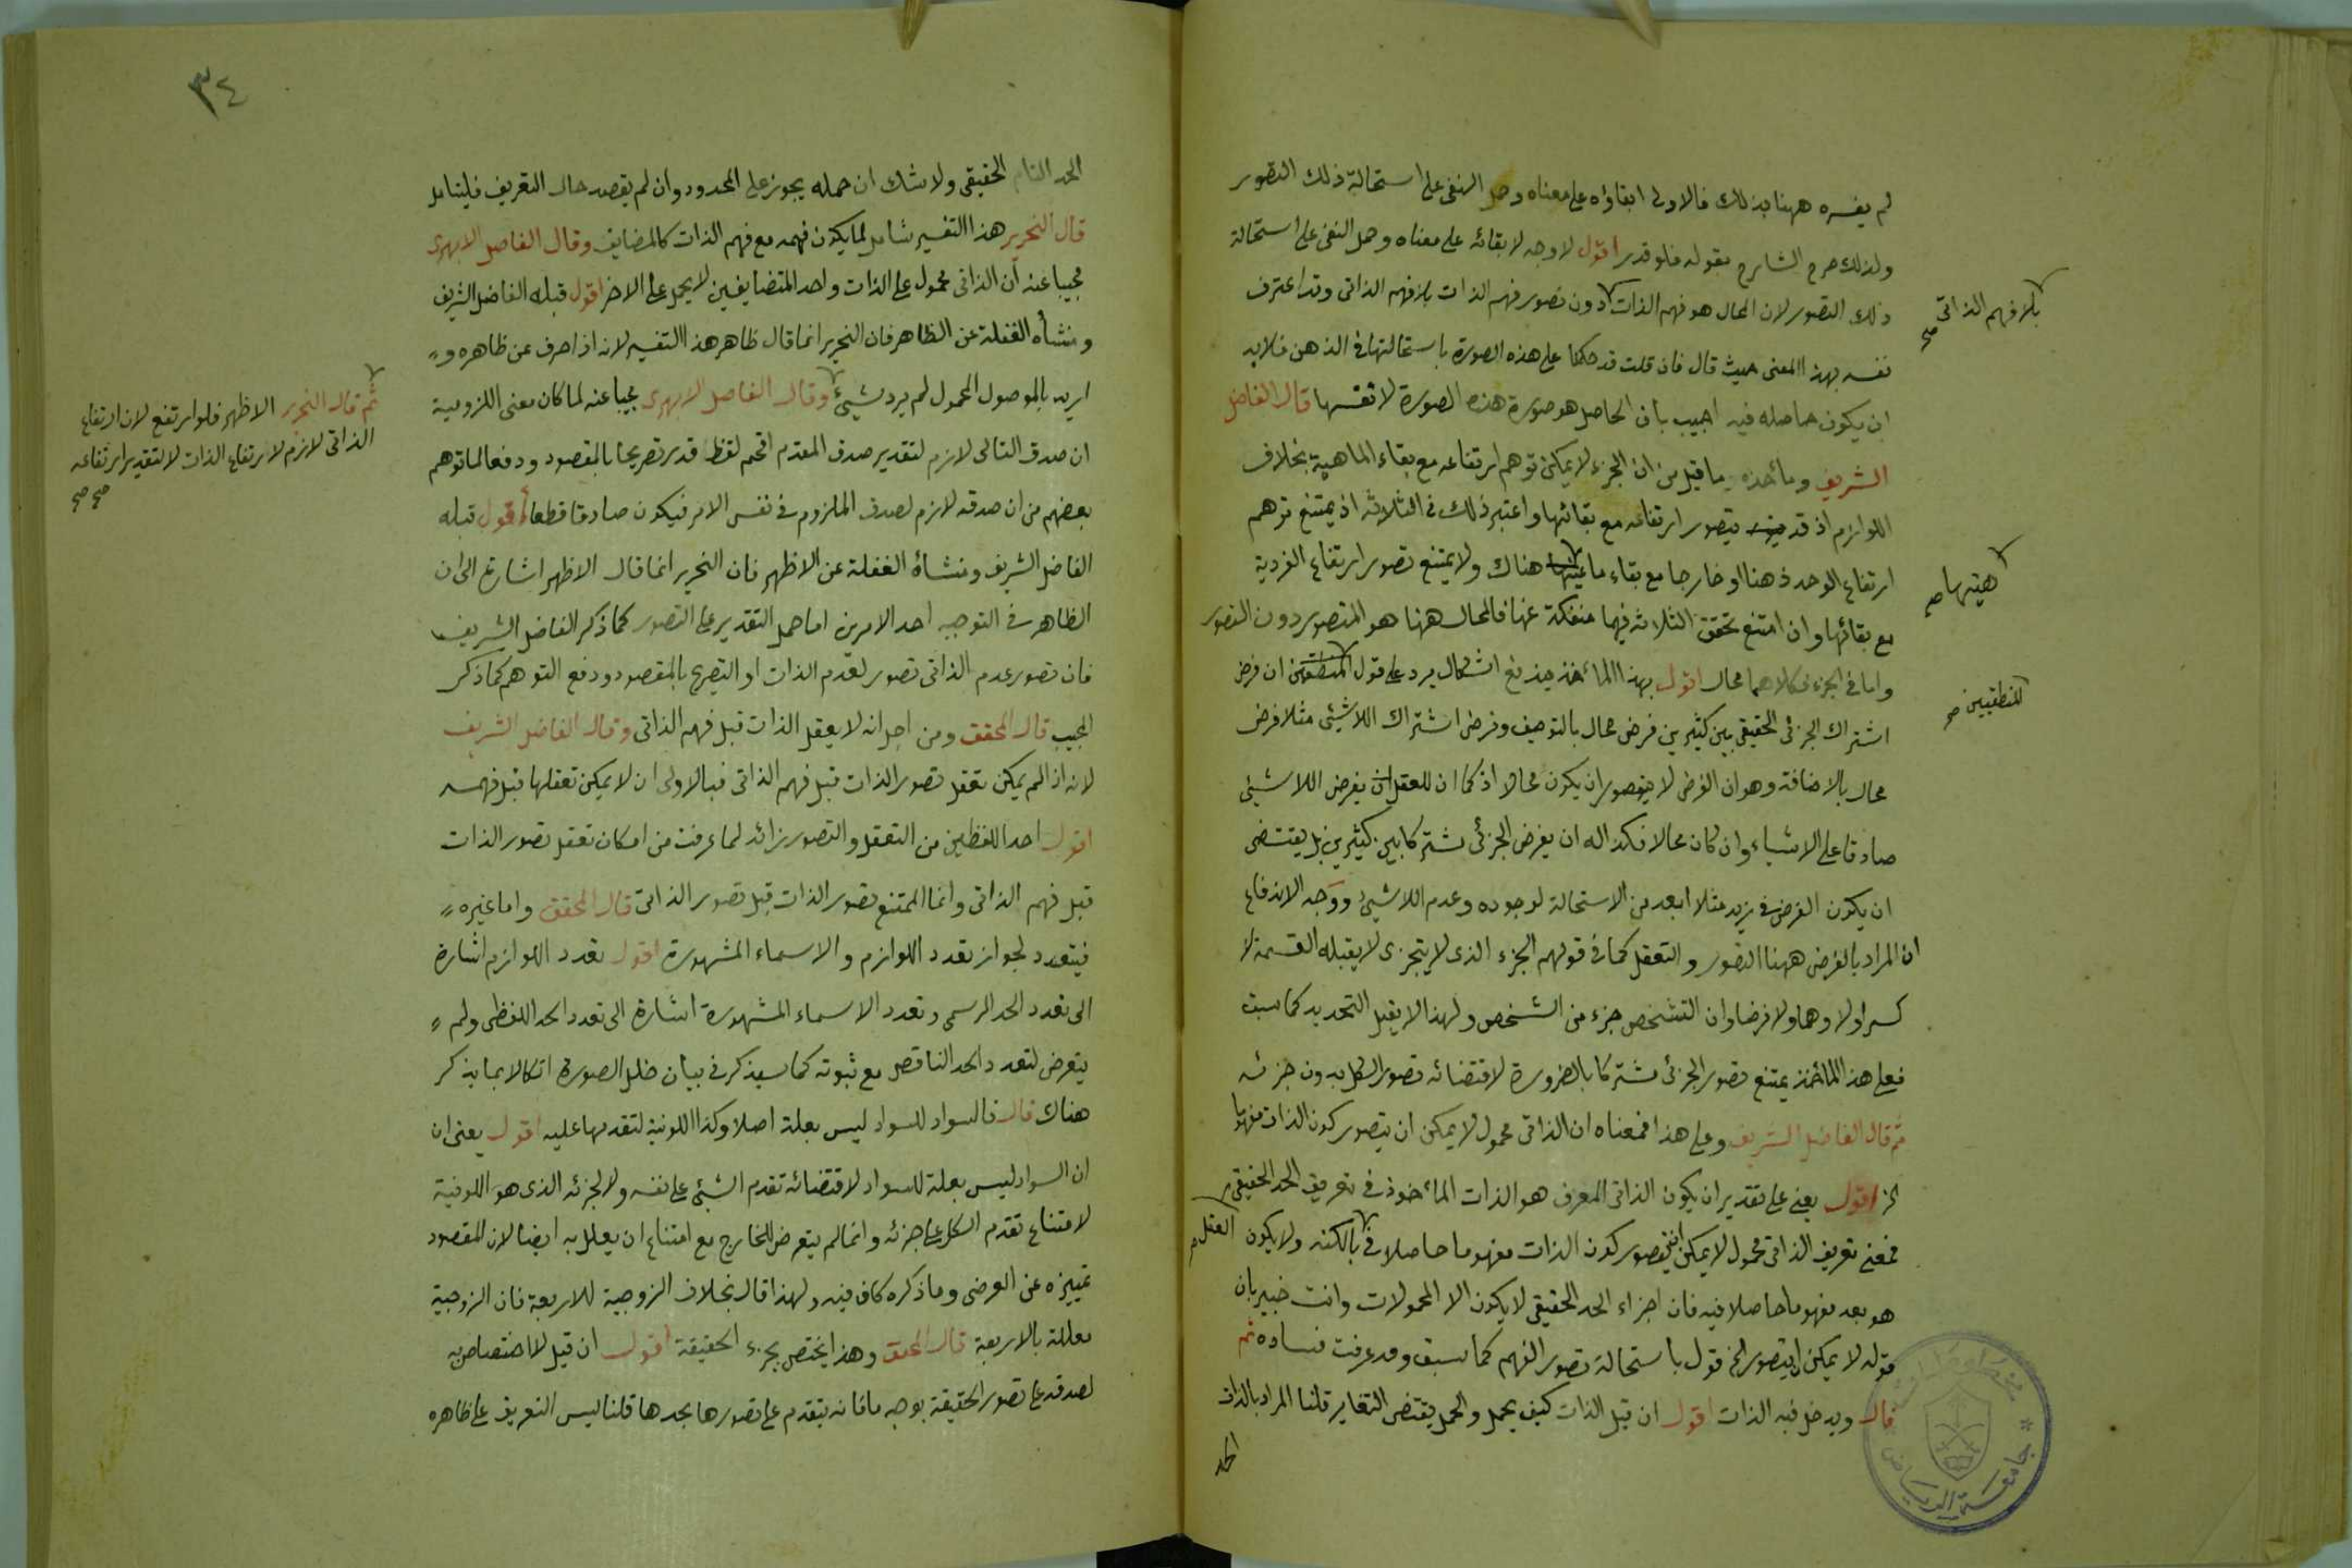 لم يفسره ههنا بذلك فالاولى ابقاؤه على معناه وحمل النفى على استحالة ذلك التصور
ولذلك صرح الشارح بقوله فلو قدر اقول لا وجه لابقائه على معناه وحمل النفى على استحالة
ذلك التصور لان المحال هو فهم الذات دون تصور فهم الذات بلا فهم الذاتى وقد اعترف
بلا فهم الذاتى صح
نفسه بهذا المعنى حيث قال فان قلت قد حكمنا على هذه الصورة باستحالتها فى الذهن فلا بد
ان يكون حاصله فيه اجيب بان الحاصل هو صورة هذه الصورة لا نفسها قال الفاضل
الشريف ومأخذه ما قيل من ان الجزء لا يمكن توهم ارتفاعه مع بقاء الماهية بخلاف
اللوازم اذ قد يتصور ارتفاعه مع بقائها واعتبر ذلك فى الثلاثة اذ يمتنع توهم
ارتفاع الوحد ذهنا او خارجا مع بقاء ما هناك ولا يمتنع تصور ارتفاع الفردية
هيتها صح
مع بقائها وان امتنع تحقق الثلاثة فيهما منفكة عنها فالمحال ههنا هو المتصور دون التصور
واما فى الجزء فكلاهما محال اقول بهذا المأخذ يندفع اشكال يرد على قول المنطقيين ان فرض
للمنطقيين صح
اشتراك الجزئى الحقيقى بين كثيرين فرض محال بالتوصيف وفرض اشتراك اللاشيئى مثلا فرض
محال بالاضافة وهو ان الفرض لا يتصور ان يكون محالا اذ كما ان للعقل ان يفرض اللاشيئى
صادقا على الاشياء وان كان محالا فكذا له ان يفرض الجزئى مشتركا بين كثيرين بل يقتضى
ان يكون الفرض فى زيد مثلا ابعد من الاستحالة لوجوده وعدم اللاشيئ ووجه الاندفاع
ان المراد بالفرض ههنا التصور والتعقل كما فى قولهم الجزء الذى لا يتجزى لا يقبله القسمة لا
كسرا ولا وهما ولا فرضا وان التشخص جزء من الشخص ولهذا لا يقبل التحديد كما سبق
فعلى هذا المأخذ يمتنع تصور الجزئى مشتركا بالضرورة لاقتضائه تصور الكل بدون جزئه
ثم قال الفاضل الشريف وعلى هذا فمعناه ان الذاتى محمول لا يمكن ان يتصور كون الذات مفهوما
الخ اقول يعنى على تقدير ان يكون الذاتى المعرف هو الذات المأخوذ فى تعريف الحد الحقيقى
فمعنى تعريف الذاتى محمول لا يمكن ان يتصور كون الذات مفهوما حاصلا فى بالكنه ولا يكون
العقل صح
هو بعد مفهوما حاصلا فيه فان اجزاء الحد الحقيقى لا يكون الا المحمولات وانت خبير بان
قوله لا يمكن ان يتصور الخ قول باستحالة تصور الفهم كما سبق وقد عرفت فساده ثم
قال ويدخل فيه الذات اقول ان قيل الذات كيف يحمل والحمل يقتضى التغاير قلنا المراد بالذات
الحد
جامعة الرياض
٣٤
الحد التام الحقيقى ولا شك ان حمله يجوز على المحدود وان لم يقصد حال التعريف فليتأمل
قال النحرير هذا التفسير شامل لما يكون فهمه مع فهم الذات كالمضايف وقال الفاضل الابهرى
مجيبا عنه أن الذاتى محمول على الذات واحد المتضايفين لا يحمل على الاخر اقول قبله الفاضل الشريف
ومنشأه الغفلة عن الظاهر فان النحرير انما قال ظاهر هذا التفسير لانه اذا صرف عن ظاهره و
اريد بالموصول المحمول لم يرد شيئ وقال الفاضل الابهرى مجيبا عنه لما كان معنى اللزومية
ثم قال النحرير الاظهر فلو ارتفع لان ارتفاع
الذاتى لازم لارتفاع الذات لا لتقدير ارتفاعه
صح صح
ان صدق التالى لازم لتقدير صدق المقدم اقحم لفظ قدر تصريحا بالمقصود ودفعا لما توهم
بعضهم من ان صدقه لازم لصدق الملزوم فى نفس الامر فيكون صادقا قطعا أقول قبله
الفاضل الشريف ومنشأه الغفلة عن الاظهر فان النحرير انما قال الاظهر اشارة الى ان
الظاهر فى التوجيه احد الامرين اما حمل التقدير على التصور كما ذكر الفاضل الشريف
فان تصور عدم الذاتى تصور لعدم الذات او التصريح بالمقصود ودفع التوهم كما ذكر
المجيب قال المحقق ومن اجل انه لا يعقل الذات قبل فهم الذاتى وقال الفاضل الشريف
لانه اذا لم يمكن تعقل تصور الذات قبل فهم الذاتى فبالاولى ان لا يمكن تعقلها قبل فهمه
اقول احد اللفظين من التعقل والتصور زائد لما عرفت من امكان تعقل تصور الذات
قبل فهم الذاتى وانما الممتنع تصور الذات قبل تصور الذاتى قال المحقق واما غيره
فيتعدد لجواز تعدد اللوازم والاسماء المشهورة اقول تعدد اللوازم اشارة
الى تعدد الحد الرسمى وتعدد الاسماء المشهورة اشارة الى تعدد الحد اللفظى ولم
يتعرض لتعدد الحد الناقص مع ثبوته كما سيذكر فى بيان خلل الصورة اتكالا بما يذكر
هناك قال فالسواد للسواد ليس بعلة اصلا وكذا اللونية لتقدمها عليه اقول يعنى ان
ان السواد ليس بعلة للسواد لاقتضائه تقدم الشيئ على نفسه ولا لجزئه الذى هو اللونية
لامتناع تقدم الكل على جزئه وانما لم يتعرض للخارج مع امتناع ان يعلل به ايضا لان المقصود
تمييزه عن العرضى وما ذكره كاف فيه ولهذا قال بخلاف الزوجية للاربعة فان الزوجية
معللة بالاربعة قال المحقق وهذا يختص بجزء الحقيقة اقول ان قيل لا اختصاص به
لصدقه على تصور الحقيقة بوجه ما فانه يتقدم على تصورها بحدها قلنا ليس التعريف على ظاهره